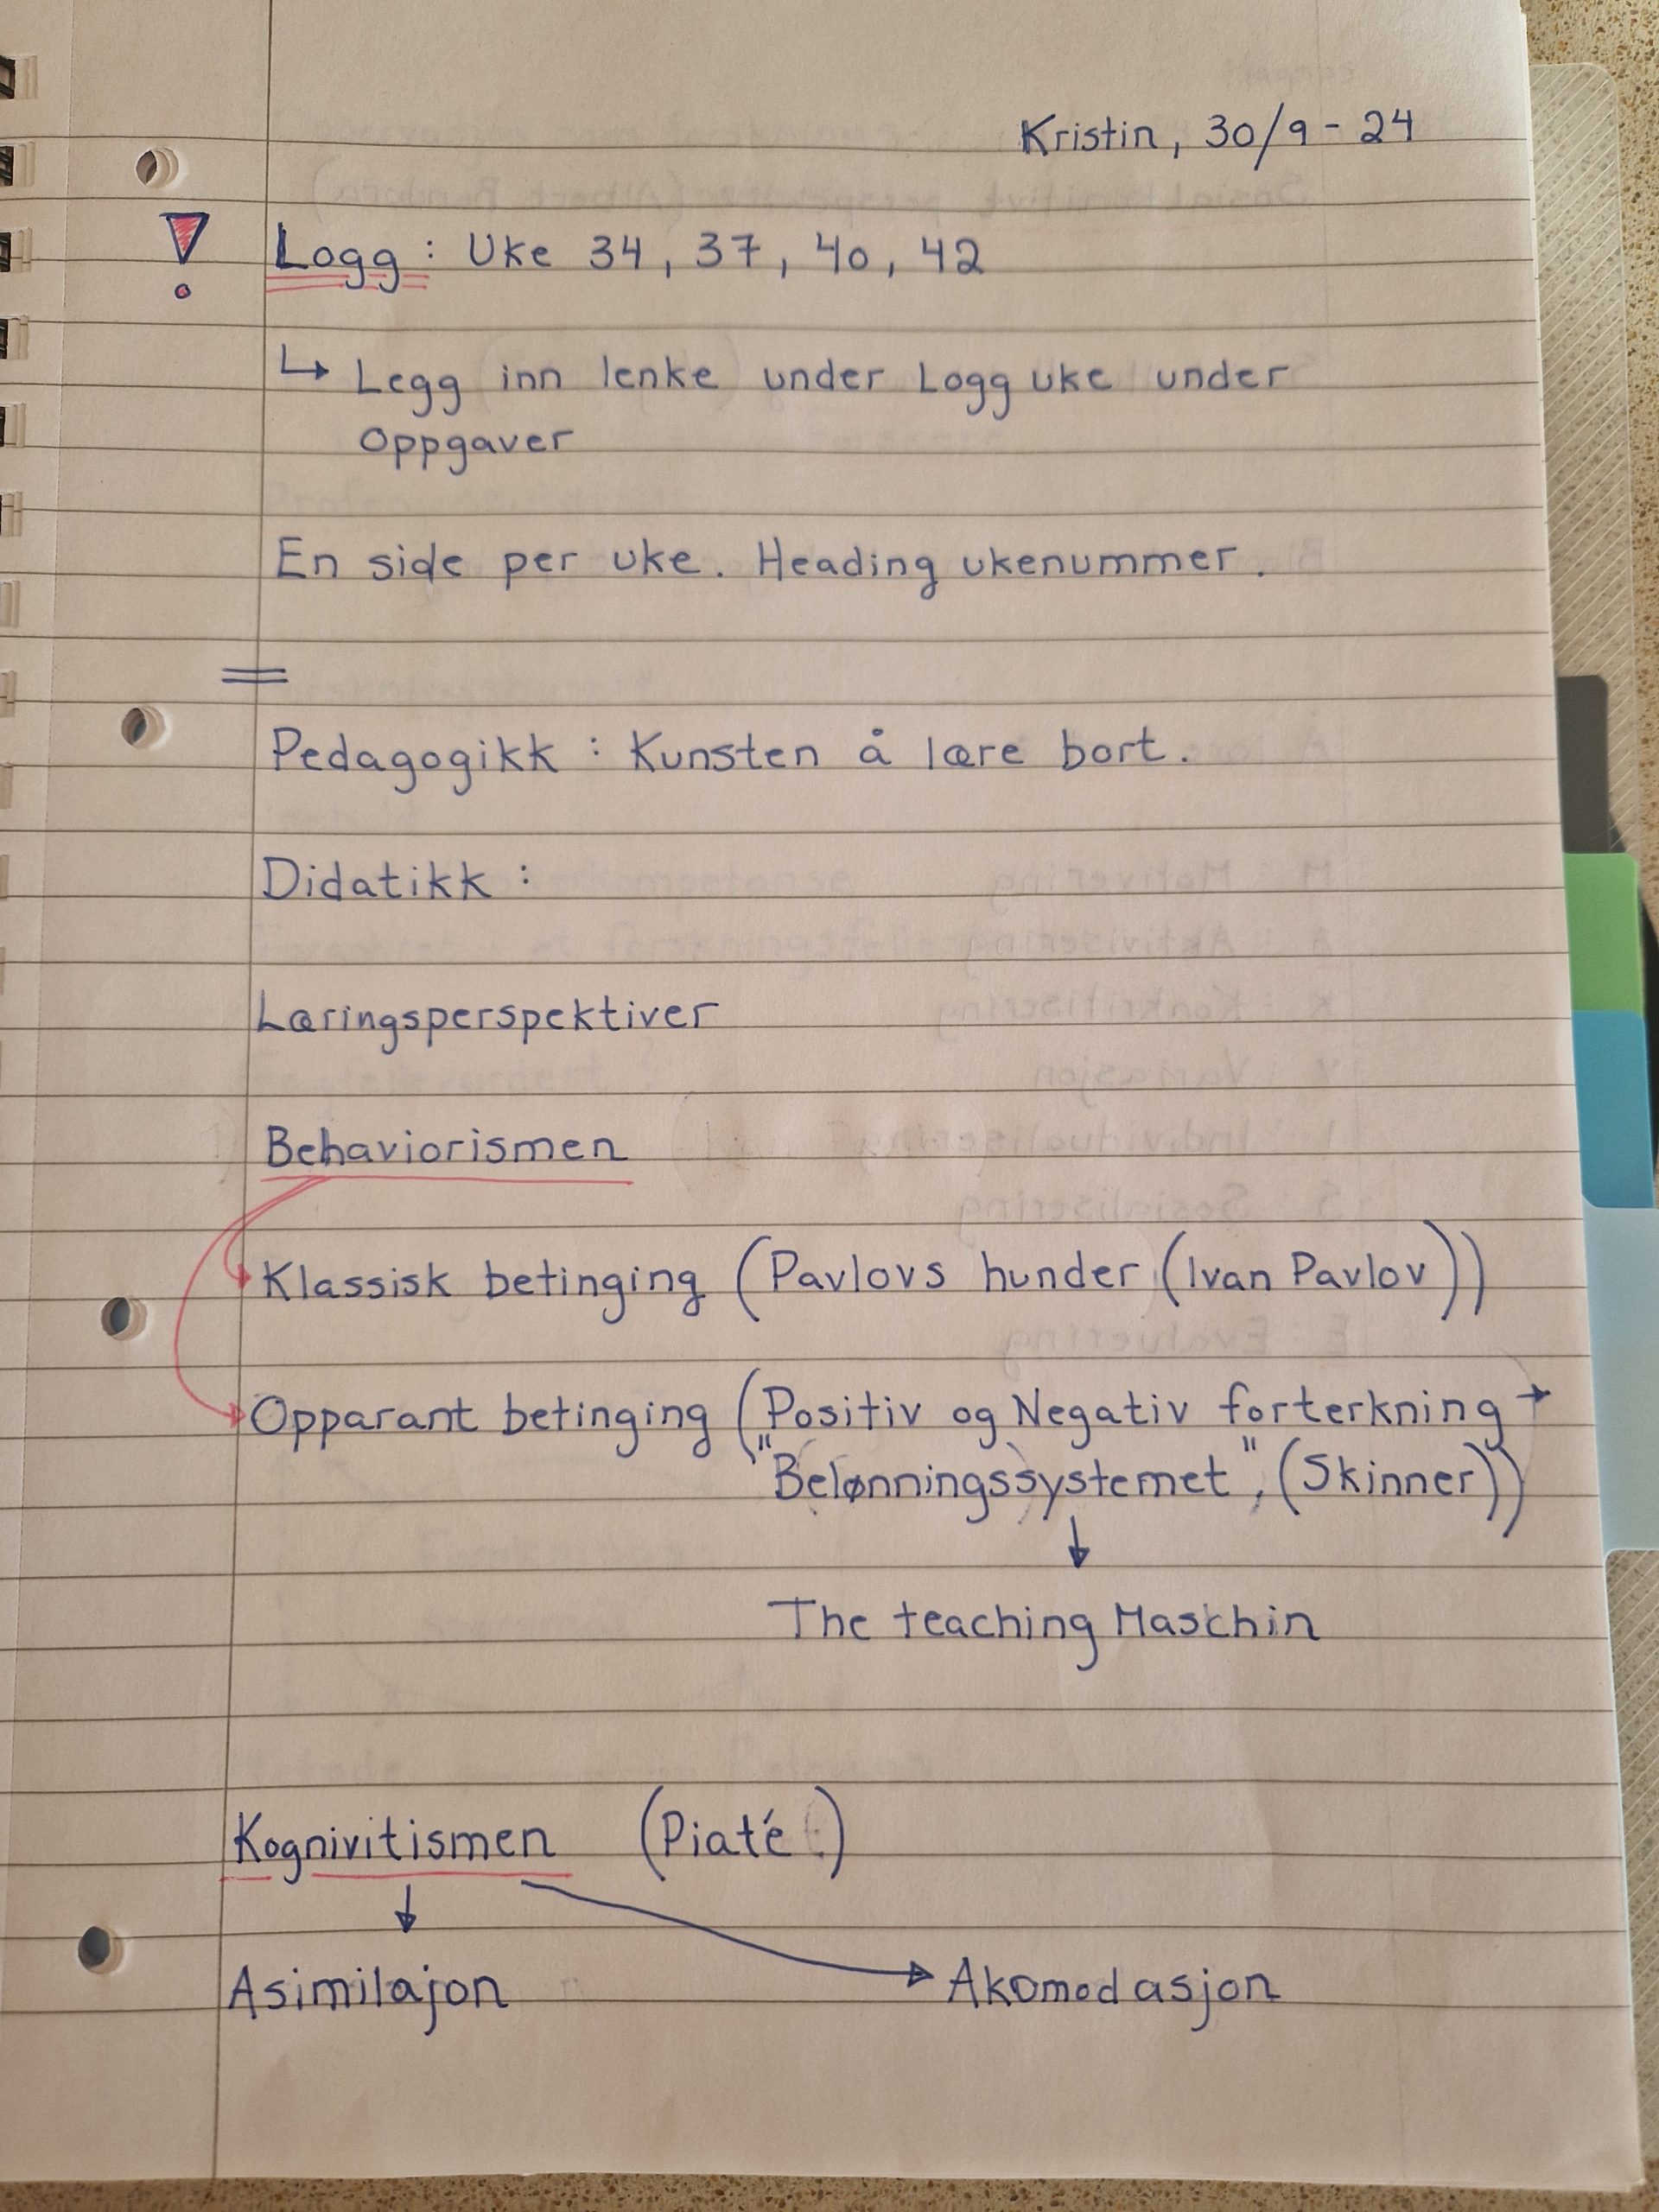 Kristin, 30/9-24
! Logg: Uke 34, 37, 40, 42
↳ Legg inn lenke under Logg uke under
oppgaver
En side per uke. Heading ukenummer.
=
Pedagogikk: Kunsten å lære bort.
Didatikk:
Læringsperspektiver
Behaviorismen
Klassisk betinging (Pavlovs hunder (Ivan Pavlov))
Opparant betinging (Positiv og Negativ forterkning →
"Belønningssystemet", (Skinner))
↓
The teaching Maschin
Kognivitismen (Piaté)
Asimilajon Akomodasjon